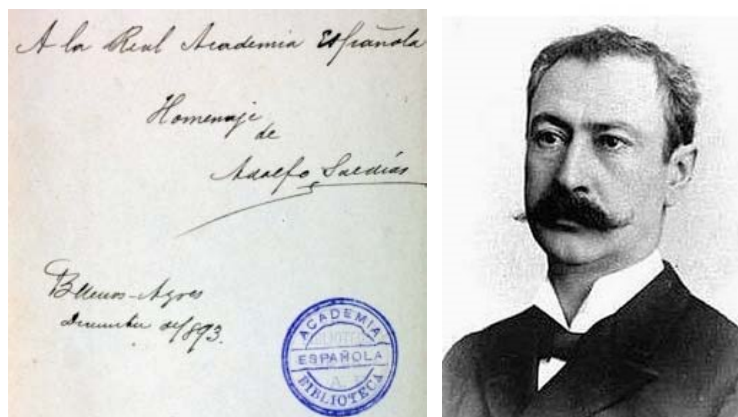 A la Real Academia Española
Homenaje
de
Adolfo Saldías
Buenos-Ayres
Diciembre de 1893.
ACADEMIA
ESPAÑOLA
BIBLIOTECA